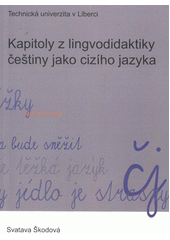 Technická univerzita v Liberci
Kapitoly z lingvodidaktiky
češtiny jako cizího jazyka
žky
a bude sněžit
těžká jazyk
čj
y jídlo je straš
Svatava Škodová